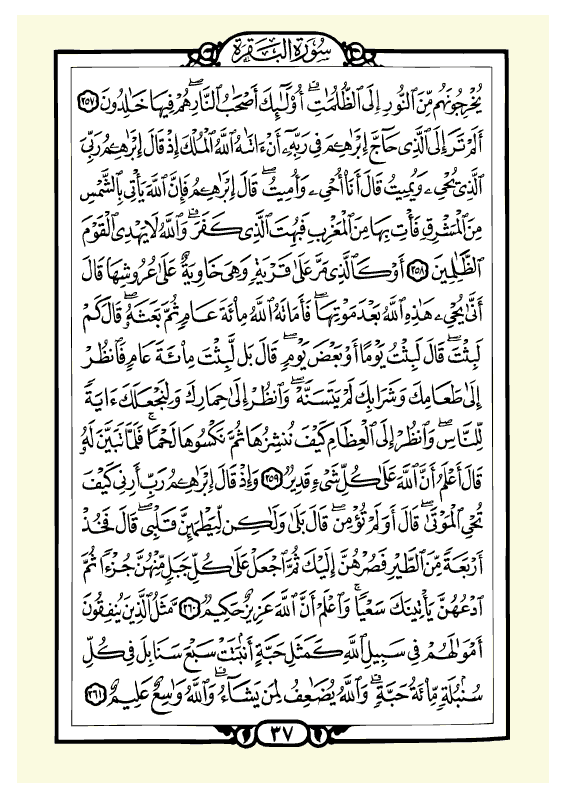 سورة البقرة
يُخْرِجُونَهُم مِّنَ ٱلنُّورِ إِلَى ٱلظُّلُمَٰتِۗ أُوْلَٰٓئِكَ أَصْحَٰبُ ٱلنَّارِۖ هُمْ فِيهَا خَٰلِدُونَ ٢٥٧
أَلَمْ تَرَ إِلَى ٱلَّذِى حَآجَّ إِبْرَٰهِۦمَ فِى رَبِّهِۦٓ أَنْ ءَاتَىٰهُ ٱللَّهُ ٱلْمُلْكَ إِذْ قَالَ إِبْرَٰهِۦمُ رَبِّىَ
ٱلَّذِى يُحْىِۦ وَيُمِيتُ قَالَ أَنَا۠ أُحْىِۦ وَأُمِيتُۖ قَالَ إِبْرَٰهِۦمُ فَإِنَّ ٱللَّهَ يَأْتِى بِٱلشَّمْسِ
مِنَ ٱلْمَشْرِقِ فَأْتِ بِهَا مِنَ ٱلْمَغْرِبِ فَبُهِتَ ٱلَّذِى كَفَرَۗ وَٱللَّهُ لَا يَهْدِى ٱلْقَوْمَ
ٱلظَّٰلِمِينَ ٢٥٨ أَوْ كَٱلَّذِى مَرَّ عَلَىٰ قَرْيَةٍ وَهِىَ خَاوِيَةٌ عَلَىٰ عُرُوشِهَا قَالَ
أَنَّىٰ يُحْىِۦ هَٰذِهِ ٱللَّهُ بَعْدَ مَوْتِهَاۖ فَأَمَاتَهُ ٱللَّهُ مِا۟ئَةَ عَامٍ ثُمَّ بَعَثَهُۥۖ قَالَ كَمْ
لَبِثْتَۖ قَالَ لَبِثْتُ يَوْمًا أَوْ بَعْضَ يَوْمٍۖ قَالَ بَل لَّبِثْتَ مِا۟ئَةَ عَامٍ فَٱنظُرْ
إِلَىٰ طَعَامِكَ وَشَرَابِكَ لَمْ يَتَسَنَّهْۖ وَٱنظُرْ إِلَىٰ حِمَارِكَ وَلِنَجْعَلَكَ ءَايَةً
لِّلنَّاسِۖ وَٱنظُرْ إِلَى ٱلْعِظَامِ كَيْفَ نُنشِزُهَا ثُمَّ نَكْسُوهَا لَحْمًاۚ فَلَمَّا تَبَيَّنَ لَهُۥ
قَالَ أَعْلَمُ أَنَّ ٱللَّهَ عَلَىٰ كُلِّ شَىْءٍ قَدِيرٌ ٢٥٩ وَإِذْ قَالَ إِبْرَٰهِۦمُ رَبِّ أَرِنِى كَيْفَ
تُحْىِ ٱلْمَوْتَىٰۖ قَالَ أَوَلَمْ تُؤْمِنۖ قَالَ بَلَىٰ وَلَٰكِن لِّيَطْمَئِنَّ قَلْبِىۖ قَالَ فَخُذْ
أَرْبَعَةً مِّنَ ٱلطَّيْرِ فَصُرْهُنَّ إِلَيْكَ ثُمَّ ٱجْعَلْ عَلَىٰ كُلِّ جَبَلٍ مِّنْهُنَّ جُزْءًا ثُمَّ
ٱدْعُهُنَّ يَأْتِينَكَ سَعْيًاۚ وَٱعْلَمْ أَنَّ ٱللَّهَ عَزِيزٌ حَكِيمٌ ٢٦٠ مَّثَلُ ٱلَّذِينَ يُنفِقُونَ
أَمْوَٰلَهُمْ فِى سَبِيلِ ٱللَّهِ كَمَثَلِ حَبَّةٍ أَنۢبَتَتْ سَبْعَ سَنَابِلَ فِى كُلِّ
سُنۢبُلَةٍ مِّا۟ئَةُ حَبَّةٍۗ وَٱللَّهُ يُضَٰعِفُ لِمَن يَشَآءُۗ وَٱللَّهُ وَٰسِعٌ عَلِيمٌ ٢٦١
٣٧